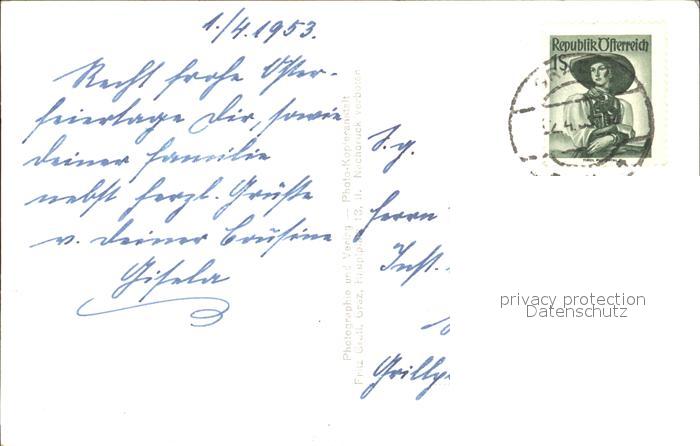 1./4.1953.
Recht frohe Oster-
feiertage Dir, sowie
Deiner Familie
nebst herzl. Grüsse
v. Deiner Cousine
Gisela
Photographie und Verlag — Photo-Kopieranstalt
Fritz Gratl, Graz, Hauptplatz 13, II. Nachdruck verboten
S.g.
Herrn
Inst.
Grillp
Republik Österreich
1S
privacy protection
Datenschutz